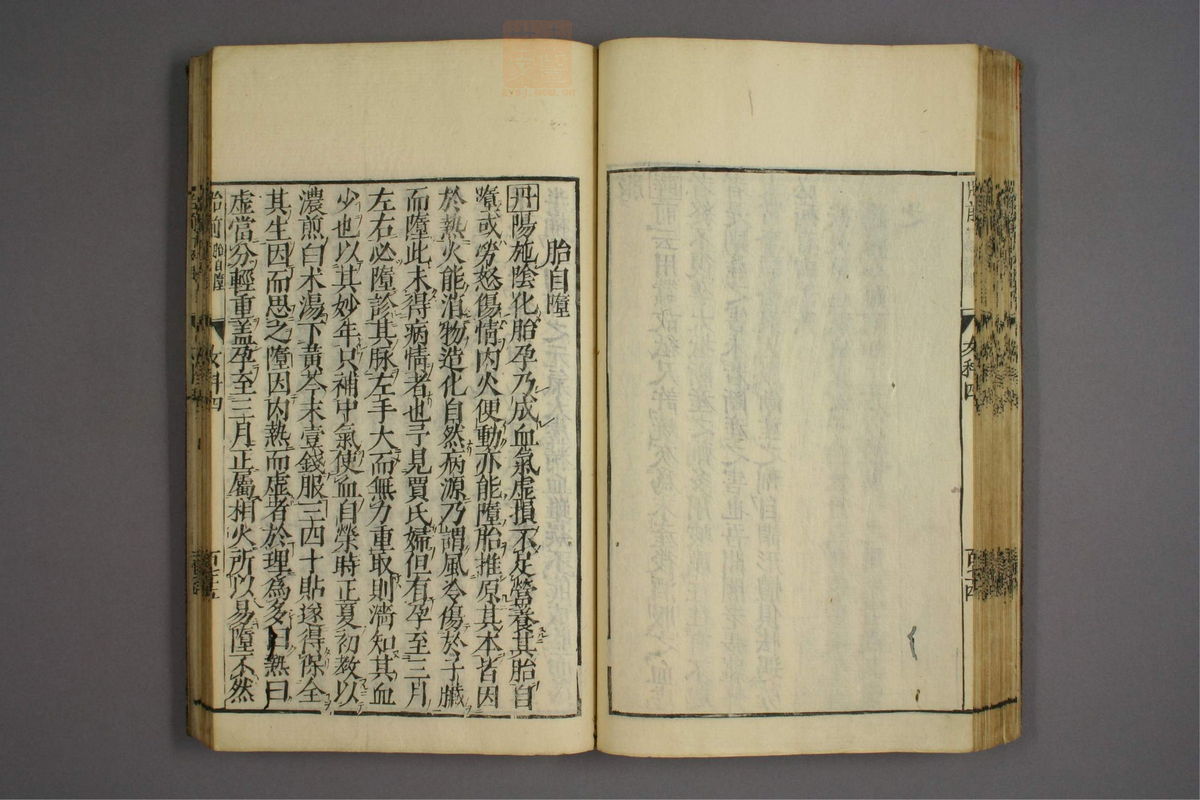 女科四
百十四
胎自墮
丹陽施陰化胎孕乃成血氣虛損不足營養其胎自
墮或勞怒傷情內火便動亦能墮胎推原其本皆因
於熱火能消物造化自然病源乃謂風冷傷於子臟
而墮此未得病情者也予見賈氏婦但有孕至三月
左右必墮診其脉左手大而無力重取則濇知其血
少也以其妙年只補中氣使血自榮時正夏初教以
濃煎白术湯下黃芩末壹錢服三四十貼遂得保全
其生因而思之墮因內熱而虛者於理爲多曰熱曰
虛當分輕重盖孕至三月正屬相火所以易墮不然
胎前 胎自墮
女科四
百十五